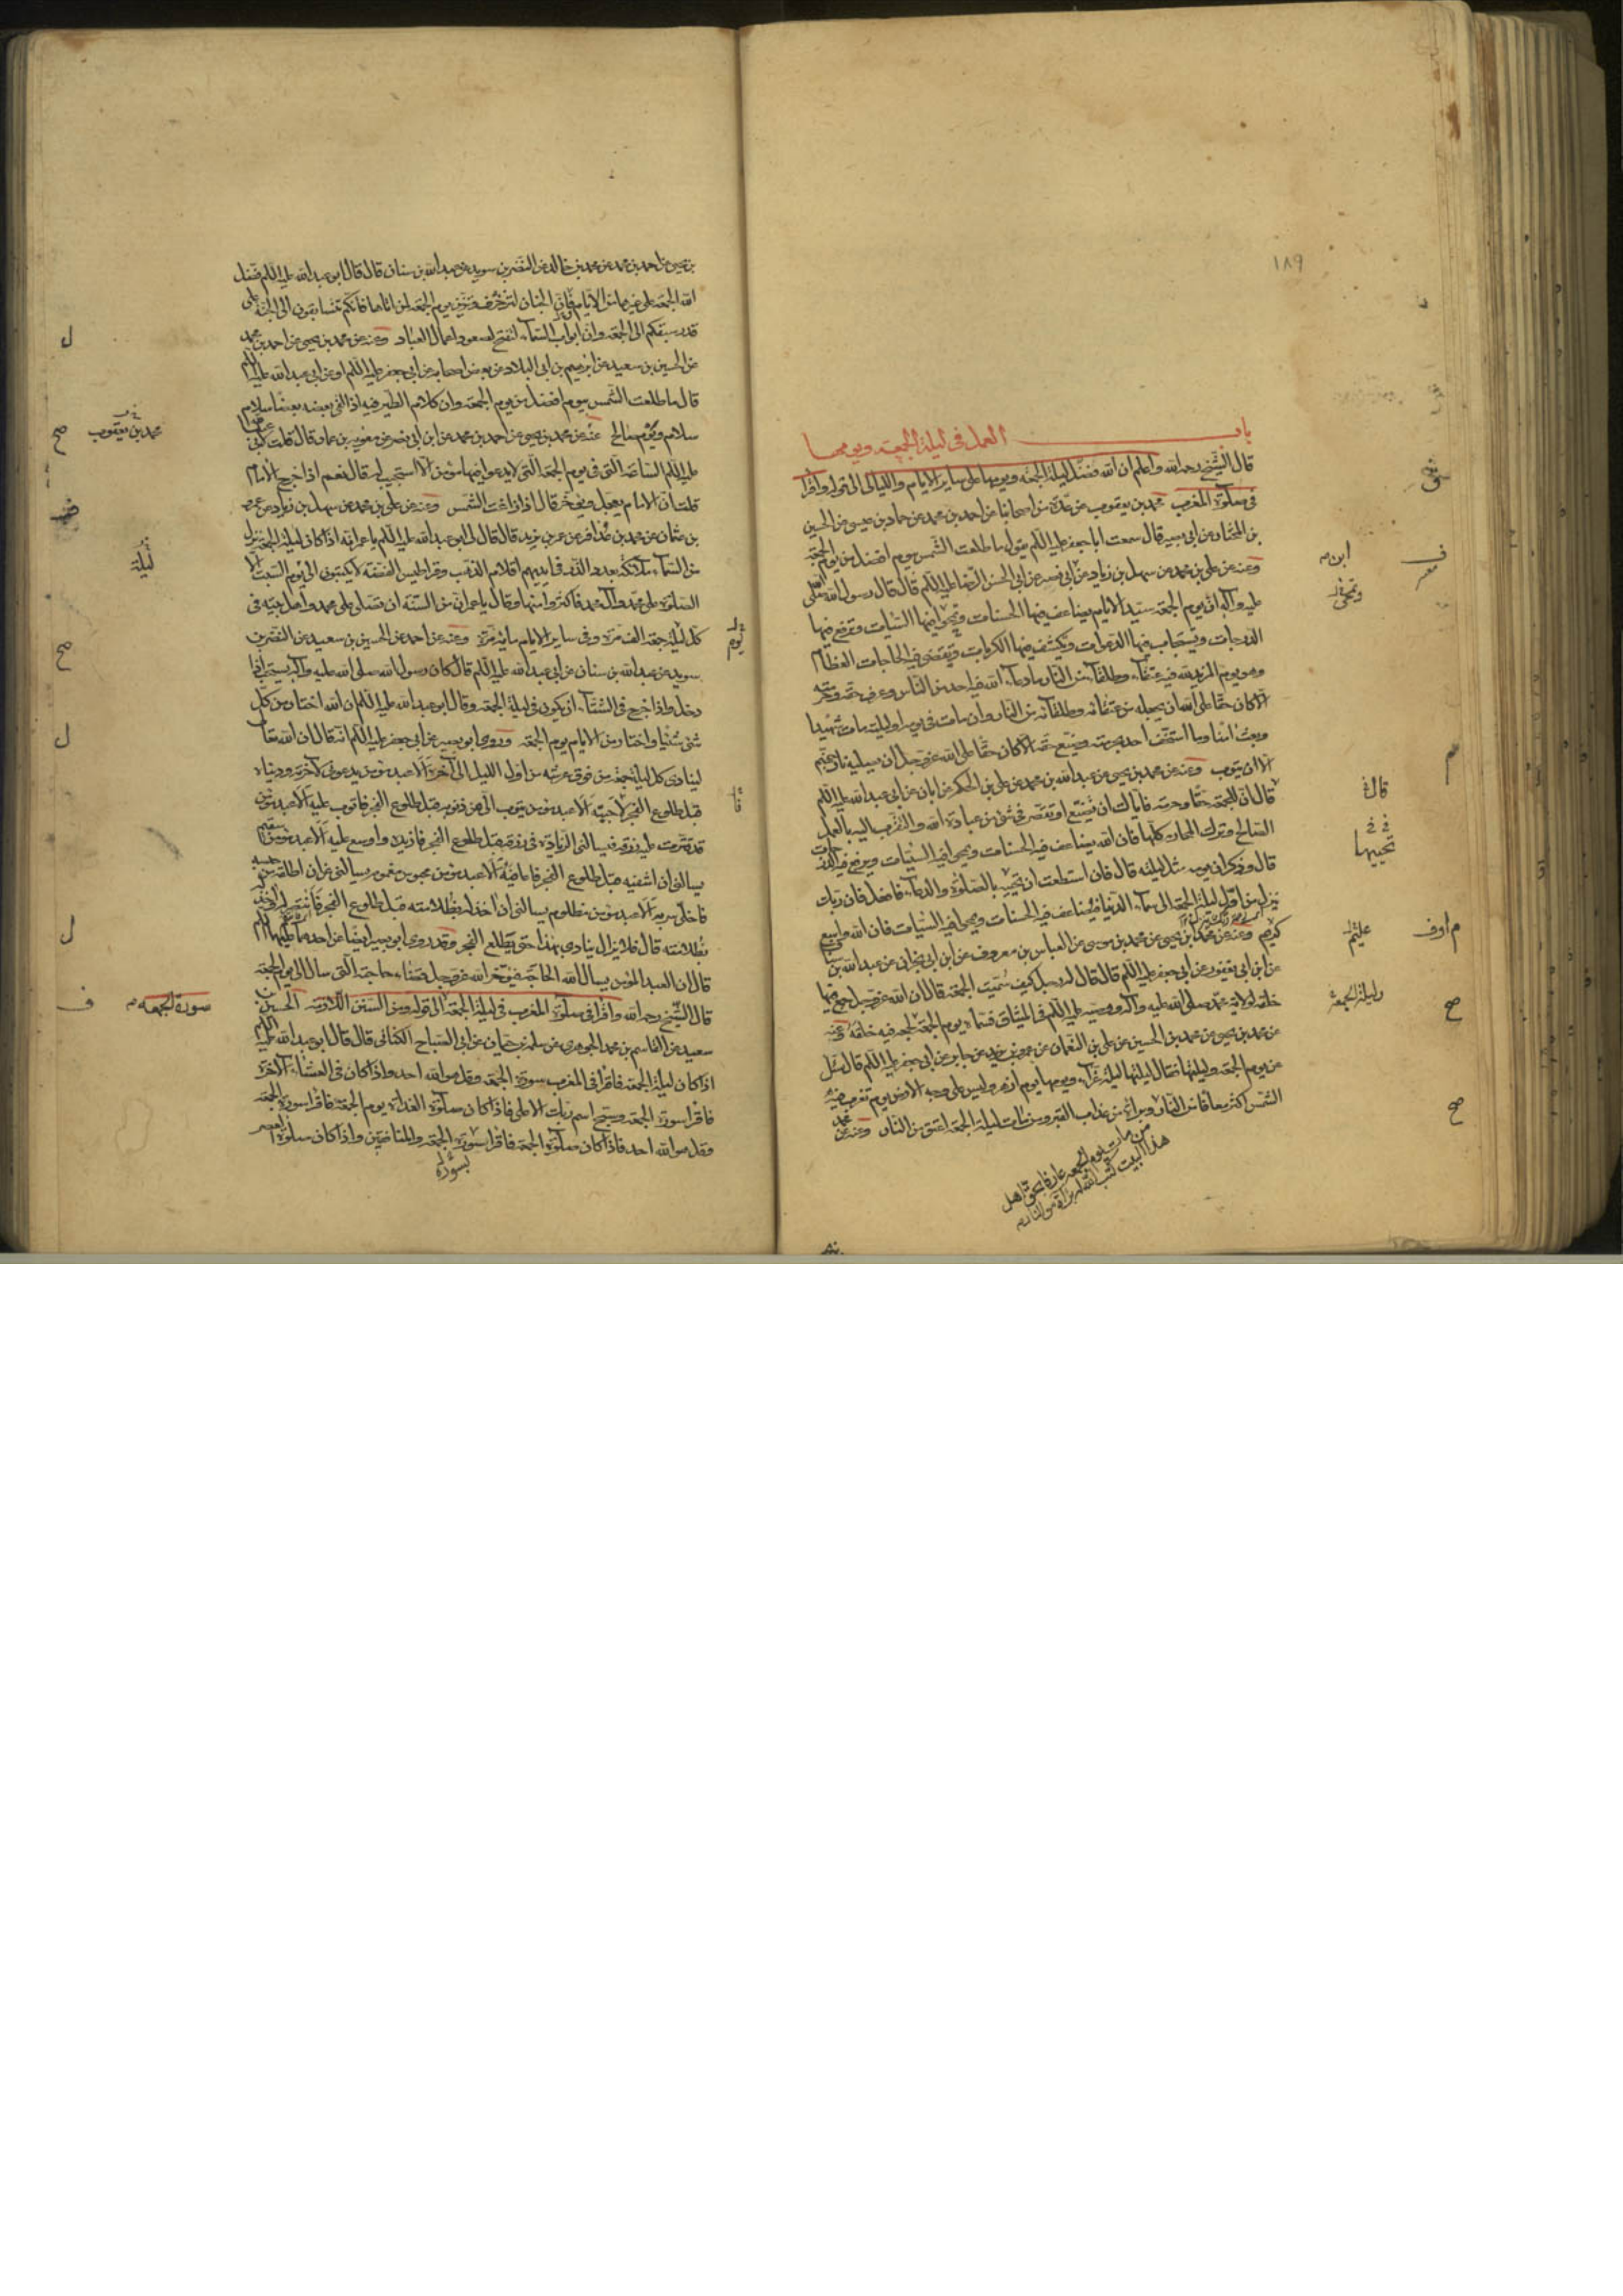 ١٨٩
باب العمل في ليلة الجمعة ويومها
قال الشيخ رحمه الله واعلم ان الله فضل ليلة الجمعة ويومها على ساير الايام والليالي الى قوله واقرأ
في صلوة المغرب محمد بن يعقوب عن عدة من اصحابنا عن احمد بن محمد عن حماد بن عيسى عن الحسين
بن المختار عن ابي بصير قال سمعت ابا جعفر عليه السلم يقول ما طلعت الشمس بيوم افضل من يوم الجمعة
وعنه عن علي بن محمد عن سهل بن زياد عن ابي نصر عن ابي الحسن الرضا عليه السلم قال قال رسول الله صلى الله
عليه وآله ان يوم الجمعة سيد الايام يضاعف فيها الحسنات وتمحى فيها السيات وترفع فيها
الدرجات وتستجاب فيها الدعوات وتكشف فيها الكربات وتقضى فيه الحاجات العظام
وهو يوم المزيد لله فيه عتقاء وطلقاء من النار ما دعا الله فيه احد من الناس وعرف حقه وحرمته
الا كان حقا على الله ان يجعله من عتقائه وطلقائه من النار وان مات في يومه او ليلته مات شهيدا
وبعث امنا وما استخف احد بحرمته وضيع حقه الا كان حقا على الله عز وجل ان يصليه نار جهنم
الا ان يتوب وعنه عن محمد بن يحيى عن عبد الله بن محمد عن علي بن الحكم عن ابان عن ابي عبد الله عليه السلم
قال ان للجمعة حقا وحرمة فاياك ان تضيع او تقصر في شئ من عبادة الله والتقرب اليه بالعمل
الصالح وترك المحارم كلها فان الله يضاعف فيه الحسنات ويمحى فيه السيئات ويرفع فيه الدرجات
قال وذكر ان يومه مثل ليلته قال فان استطعت ان تحييه بالصلوة والدعاء فافعل فان ربك
ينزل من اول ليلة الجمعة الى سماء الدنيا فيضاعف فيه الحسنات ويمحى فيه السيئات فان الله واسع
كريم وعنه عن محمد بن يحيى عن محمد بن موسى عن العباس بن معروف عن ابن ابي نجران عن عبد الله بن سنان
عن ابن ابي يعفور عن ابي جعفر عليه السلم قال قال له رجل كيف سميت الجمعة قال ان الله عز وجل جمع فيها
خلقه لولاية محمد صلى الله عليه وآله ووصيه عليه السلم في الميثاق فسماه يوم الجمعة لجمعه فيه خلقه وعنه
عن محمد بن يحيى عن محمد بن الحسين عن علي بن النعمان عن عمرو بن يزيد عن جابر عن ابي جعفر عليه السلم قال سئل
عن يوم الجمعة وليلتها فقال ليلتها ليلة غراء ويومها يوم ازهر وليس على وجه الارض يوم تغرب فيه
الشمس اكثر معافا من النار وبراء من عذاب القبر ومن مات ليلة الجمعة اعتق من النار وعنه عن محمد
من مات يوم الجمعة عارفا بحق اهل
هذا البيت كتب الله له براءة من النار
قال
تحييها
عليهم
وليلة الجمعة
بن يحيى عن احمد بن محمد عن محمد بن خالد عن النضر بن سويد عن عبد الله بن سنان قال قال ابو عبد الله عليه السلم فضل
الله الجمعة على غيرها من الايام فان الجنان لتزخرف وتزين يوم الجمعة لمن اتاها فانكم تتسابقون الى الجنة على
قدر سبقكم الى الجمعة وان ابواب السماء لتفتح لصعود اعمال العباد وعنه عن محمد بن يحيى عن احمد بن محمد
عن الحسين بن سعيد عن ابرهيم بن ابي البلاد عن بعض اصحابه عن ابي جعفر عليه السلم او عن ابي عبد الله عليه السلم
قال ما طلعت الشمس بيوم افضل من يوم الجمعة وان كلام الطير فيه اذا التقى بعضه بعضا سلام
سلام ويوم صالح عنه عن محمد بن يحيى عن احمد بن محمد عن ابن ابي نصر عن معوية بن عمار قال قلت لابي عبد الله
عليه السلم الساعة التي في يوم الجمعة التي لا يدعو فيها مؤمن الا استجيب له قال نعم اذا خرج الامام
قلت ان الامام يعجل ويؤخر قال اذا زاغت الشمس وعنه عن علي بن محمد عن سهل بن زياد عن عمرو
بن عثمان عن محمد بن عذافر عن عمر بن يزيد قال قال لي ابو عبد الله عليه السلم يا عمر انه اذا كان ليلة الجمعة نزل
من السماء ملائكة بعدد الذر في ايديهم اقلام الذهب وقراطيس الفضة لا يكتبون الى يوم السبت الا
الصلوة على محمد وآل محمد فاكثروا منها وقال يا عمر ان من السنة ان تصلى على محمد واهل بيته في
كل ليلة جمعة الف مرة وفي ساير الايام مائة مرة وعنه عن احمد عن الحسين بن سعيد عن النضر بن
سويد عن عبد الله بن سنان عن ابي عبد الله عليه السلم قال كان رسول الله صلى الله عليه وآله يستحب اذا
دخل واذا خرج في الشتاء ان يكون في ليلة الجمعة وقال ابو عبد الله عليه السلم ان الله اختار من كل
شئ شيئا واختار من الايام يوم الجمعة وروى ابو بصير عن ابي جعفر عليه السلم انه قال ان الله تعالى
لينادى كل ليلة جمعة من فوق عرشه من اول الليل الى آخره الا عبد مؤمن يدعوني لآخرته ودنياه
قبل طلوع الفجر لاجيبه الا عبد مؤمن يتوب الي من ذنوبه قبل طلوع الفجر فاتوب عليه الا عبد مؤمن
قد قترت عليه رزقه فيسالني الزيادة في رزقه قبل طلوع الفجر فازيده واوسع عليه الا عبد مؤمن سقيم
يسالني ان اشفيه قبل طلوع الفجر فاعافيه الا عبد مؤمن محبوس مغموم يسالني ان اطلقه من حبسه
فاخلى سربه الا عبد مؤمن مظلوم يسالني ان اخذ له بظلامته قبل طلوع الفجر فانتصر له واخذ له
بظلامته قال فلا يزال ينادى بهذا حتى يطلع الفجر وقد روى ابو بصير ايضا عن احدهما عليهما السلم
قال ان العبد المؤمن يسال الله الحاجة فيؤخر الله عز وجل قضاء حاجته التي سال الى يوم الجمعة
قال الشيخ رحمه الله واقرأ في صلوة المغرب في ليلة الجمعة الى قوله ومن السنن اللازمة الحسين بن
سعيد عن القاسم بن محمد الجوهري عن سلمة بن حيان عن ابي الصباح الكناني قال قال ابو عبد الله عليه السلم
اذا كان ليلة الجمعة فاقرأ في المغرب سورة الجمعة وقل هو الله احد واذا كان في العشاء الآخرة
فاقرأ سورة الجمعة وسبح اسم ربك الاعلى فاذا كان صلوة الغداة يوم الجمعة فاقرأ سورة الجمعة
وقل هو الله احد فاذا كان صلوة الجمعة فاقرأ سورة الجمعة والمنافقين واذا كان صلوة العصر
بسورة
محمد بن يعقوب
صح
ليلة
يوم
صح
سورة الجمعة